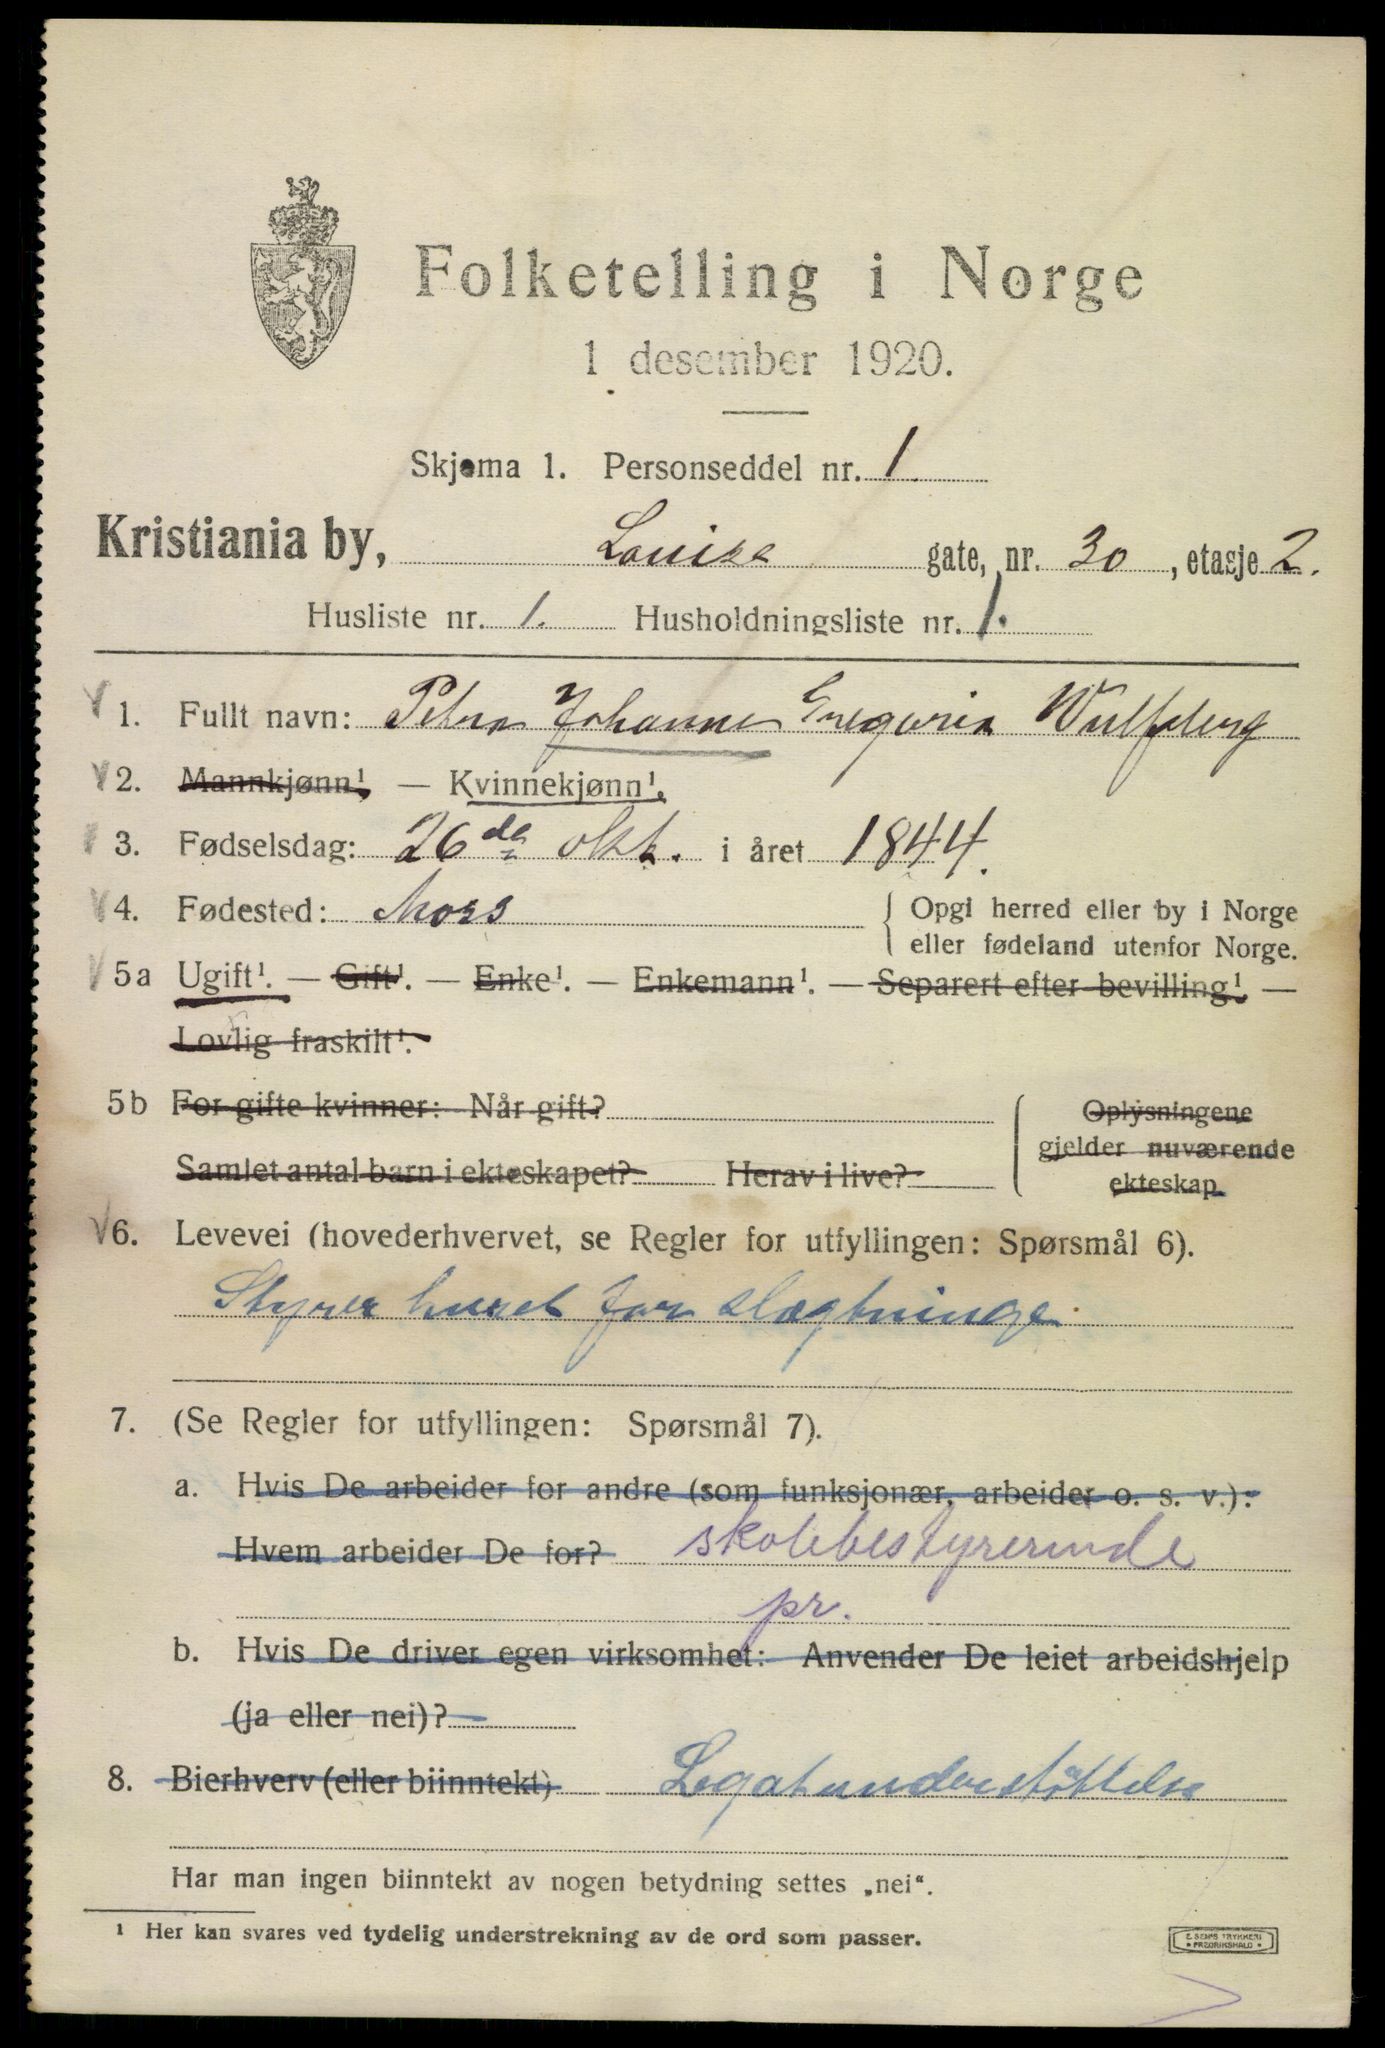 Folketelling i Norge
1 desember 1920.
Skjema 1. Personseddel nr. 1
Kristiania by, Louise gate, nr. 30, etasje 2.
Husliste nr. 1. Husholdningsliste nr. 1.
1. Fullt navn: Petra Johanne Gregoria Wulfsberg
2. Mannkjønn¹. — Kvinnekjønn¹.
3. Fødselsdag: 26de okt. i året 1844.
4. Fødested: Moss { Opgi herred eller by i Norge
eller fødeland utenfor Norge.
5a Ugift¹. — Gift¹. — Enke¹. — Enkemann¹. — Separert efter bevilling¹. —
Lovlig fraskilt¹.
5b For gifte kvinner: Når gift? { Oplysningene
gjelder nuværende
Samlet antal barn i ekteskapet? Herav i live? ekteskap.
6. Levevei (hovederhvervet, se Regler for utfyllingen: Spørsmål 6).
Styrer huset for slægtninge.
7. (Se Regler for utfyllingen: Spørsmål 7).
a. Hvis De arbeider for andre (som funksjonær, arbeider o. s. v.):
Hvem arbeider De for? skolebestyrerinde
pr.
b. Hvis De driver egen virksomhet: Anvender De leiet arbeidshjelp
(ja eller nei)?
8. Bierhverv (eller biinntekt) Legatunderstøttelse
Har man ingen biinntekt av nogen betydning settes „nei“.
¹ Her kan svares ved tydelig understrekning av de ord som passer.
E. SEM'S TRYKKERI
• FREDRIKSHALD •